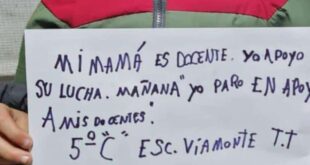 MI MAMÁ ES DOCENTE. YO APOYO
SU LUCHA. MAÑANA "YO PARO EN APOY
A MIS DOCENTES".
5º "C" ESC. VIAMONTE T.T